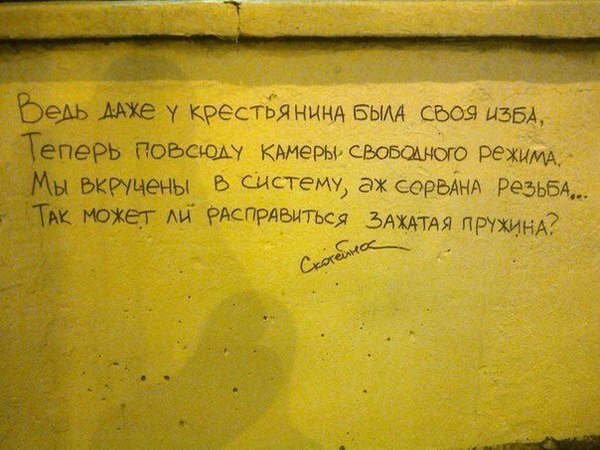 Ведь даже у крестьянина была своя изба,
Теперь повсюду камеры свободного режима.
Мы вкручены в систему, аж сорвана резьба...
Так может ли расправиться зажатая пружина?